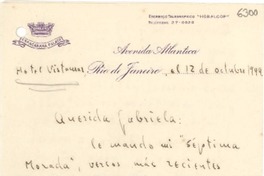 6300
ENDEREÇO TELEGRAPHICO "HOBALCOP"
TELEPHONE 27-0020
COPACABANA PALACE
Avenida Atlantica
Hotel Vistamar Rio de Janeiro, el 12 de octubre/944
Querida Gabriela:
le mando mi "Séptima
Morada", versos más recientes